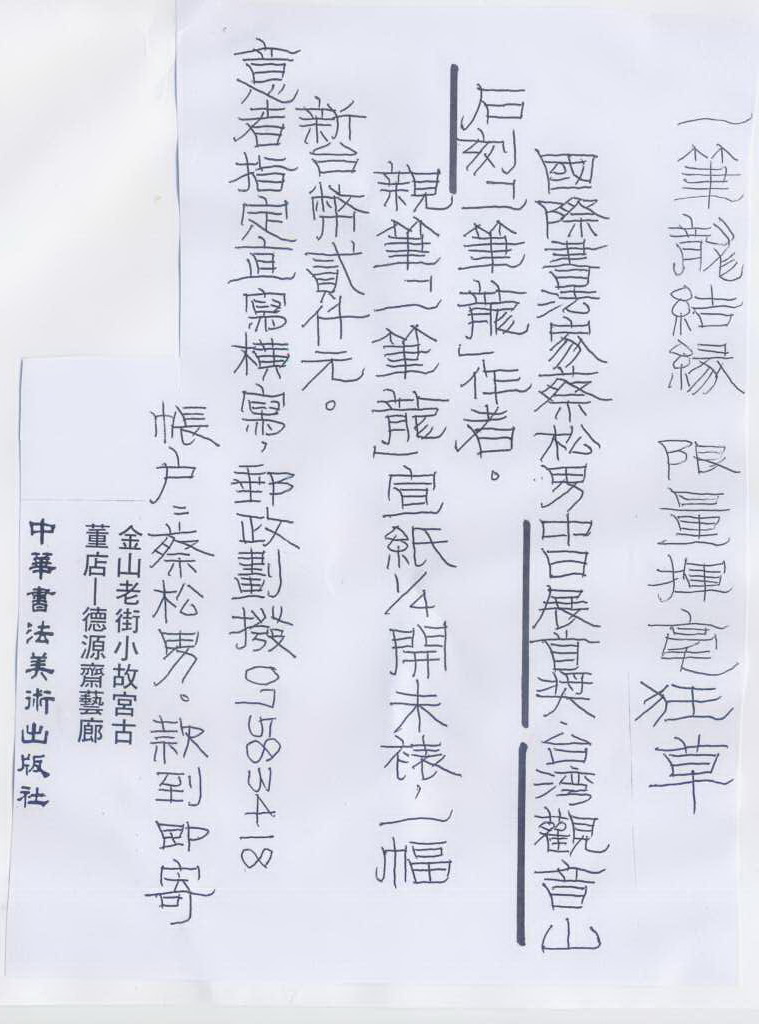 一筆龍結緣 限量揮毫狂草
國際書法家蔡松男中日展首奬·台湾觀音山
石刻「一筆龍」作者。
親筆「一筆龍」宣紙1/4開未裱,一幅
新台幣貳仟元。
意者指定直寫橫寫,郵政劃撥07583418
帳户:蔡松男。款到即寄
金山老街小故宮古
董店—德源齋藝廊
中華書法美術出版社